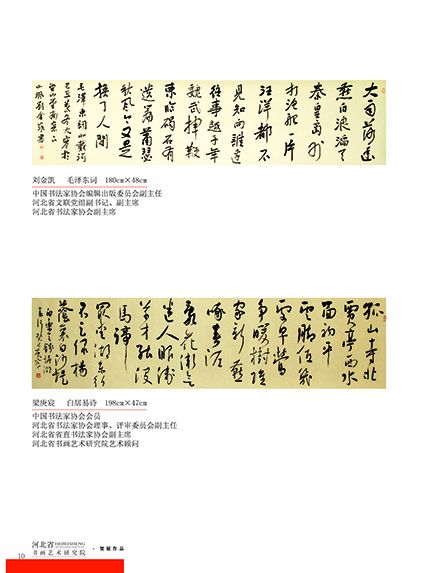 大雨落幽
燕白浪滔天
秦皇島外
打漁船一片
汪洋都不
見知向誰邊
往事越千年
魏武揮鞭
東臨碣石有
遺篇蕭瑟
秋風今又是
換了人間
毛澤東詞北戴河
刘金凯 毛泽东词 180cm×48cm
中国书法家协会编辑出版委员会副主任
河北省文联党组副书记、副主席
河北省书法家协会副主席
孤山寺北
賈亭西水
面初平
雲腳低幾
處早鶯
爭暖樹誰
家新燕
啄春泥
亂花漸欲
迷人眼淺
草才能沒
馬蹄
最愛湖東行
不足綠楊
蔭裏白沙堤
梁庚宸 白居易诗 198cm×47cm
中国书法家协会会员
河北省书法家协会理事、评审委员会副主任
河北省省直书法家协会副主席
河北省书画艺术研究院艺术顾问
10 河北省 HEBEISHENG
书画艺术研究院 · 贺展作品